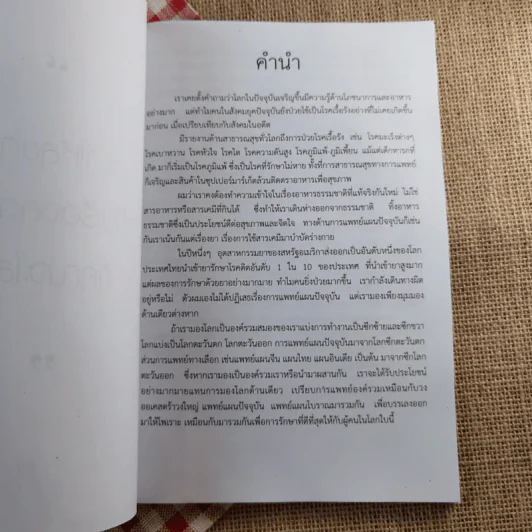 คำนำ
เราเคยตั้งคำถามว่าโลกในปัจจุบันเจริญขึ้นมีความรู้ด้านโภชนาการและอาหาร
อย่างมาก แต่ทำไมคนในสังคมยุคปัจจุบันยังป่วยใช้เป็นโรคเรื้อรังอย่างที่ไม่เคยเกิดขึ้น
มาก่อน เมื่อเปรียบเทียบกับสังคมในอดีต
มีรายงานด้านสาธารณสุขทั่วโลกถึงการป่วยโรคเรื้อรัง เช่น โรคมะเร็งต่างๆ
โรคเบาหวาน โรคหัวใจ โรคไต โรคความดันสูง โรคภูมิแพ้-ภูมิเพี้ยน แม้แต่เด็กทารกที่
เกิด มาก็เริ่มเป็นโรคภูมิแพ้ ซึ่งเป็นโรคที่รักษาไม่หาย ทั้งที่การสาธารณสุขทางการแพทย์
ก็เจริญและสินค้าในซุปเปอร์มาร์เก็ตล้วนติดตราอาหารเพื่อสุขภาพ
ผมว่าเราคงต้องทำความเข้าใจในเรื่องอาหารธรรมชาติที่แท้จริงกันใหม่ ไม่ใช่
สารอาหารหรือสารเคมีที่กินได้ ซึ่งทำให้เราเดินห่างออกจากธรรมชาติ ทั้งอาหาร
ธรรมชาติซึ่งเป็นประโยชน์ดีต่อสุขภาพและจิตใจ ทางด้านการแพทย์แผนปัจจุบันก็เช่น
กันเราเน้นกันแต่เรื่องยา เรื่องการใช้สารเคมีมาบำบัดร่างกาย
ในปีหนึ่งๆ อุตสาหกรรมยาของสหรัฐอเมริกาส่งออกเป็นอันดับหนึ่งของโลก
ประเทศไทยนำเข้ายารักษาโรคติดอันดับ 1 ใน 10 ของประเทศ ที่นำเข้ายาสูงมาก
แต่ผลของการรักษาด้วยยาอย่างมากมาย ทำไมคนยิ่งป่วยมากขึ้น เรากำลังเดินทางผิด
อยู่หรือไม่ ตัวผมเองไม่ได้ปฏิเสธเรื่องการแพทย์แผนปัจจุบัน แต่เรามองเพียงมุมมอง
ด้านเดียวต่างหาก
ถ้าเรามองโลกเป็นองค์รวมสมองของเราแบ่งการทำงานเป็นซีกซ้ายและซีกขวา
โลกแบ่งเป็นโลกตะวันตก โลกตะวันออก การแพทย์แผนปัจจุบันมาจากโลกซีกตะวันตก
ส่วนการแพทย์ทางเลือก เช่นแพทย์แผนจีน แผนไทย แผนอินเดีย เป็นต้น มาจากซีกโลก
ตะวันออก ซึ่งหากเรามองเป็นองค์รวมเราหรือนำมาผสานกัน เราจะได้รับประโยชน์
อย่างมากมายแทนการมองโลกด้านเดียว เปรียบการแพทย์องค์รวมเหมือนกับวง
ออเคสตร้าวงใหญ่ แพทย์แผนปัจจุบัน แพทย์แผนโบราณมารวมกัน เพื่อบรรเลงออก
มาให้ไพเราะ เหมือนกับมารวมกันเพื่อการรักษาที่ดีที่สุดให้กับผู้คนในโลกใบนี้